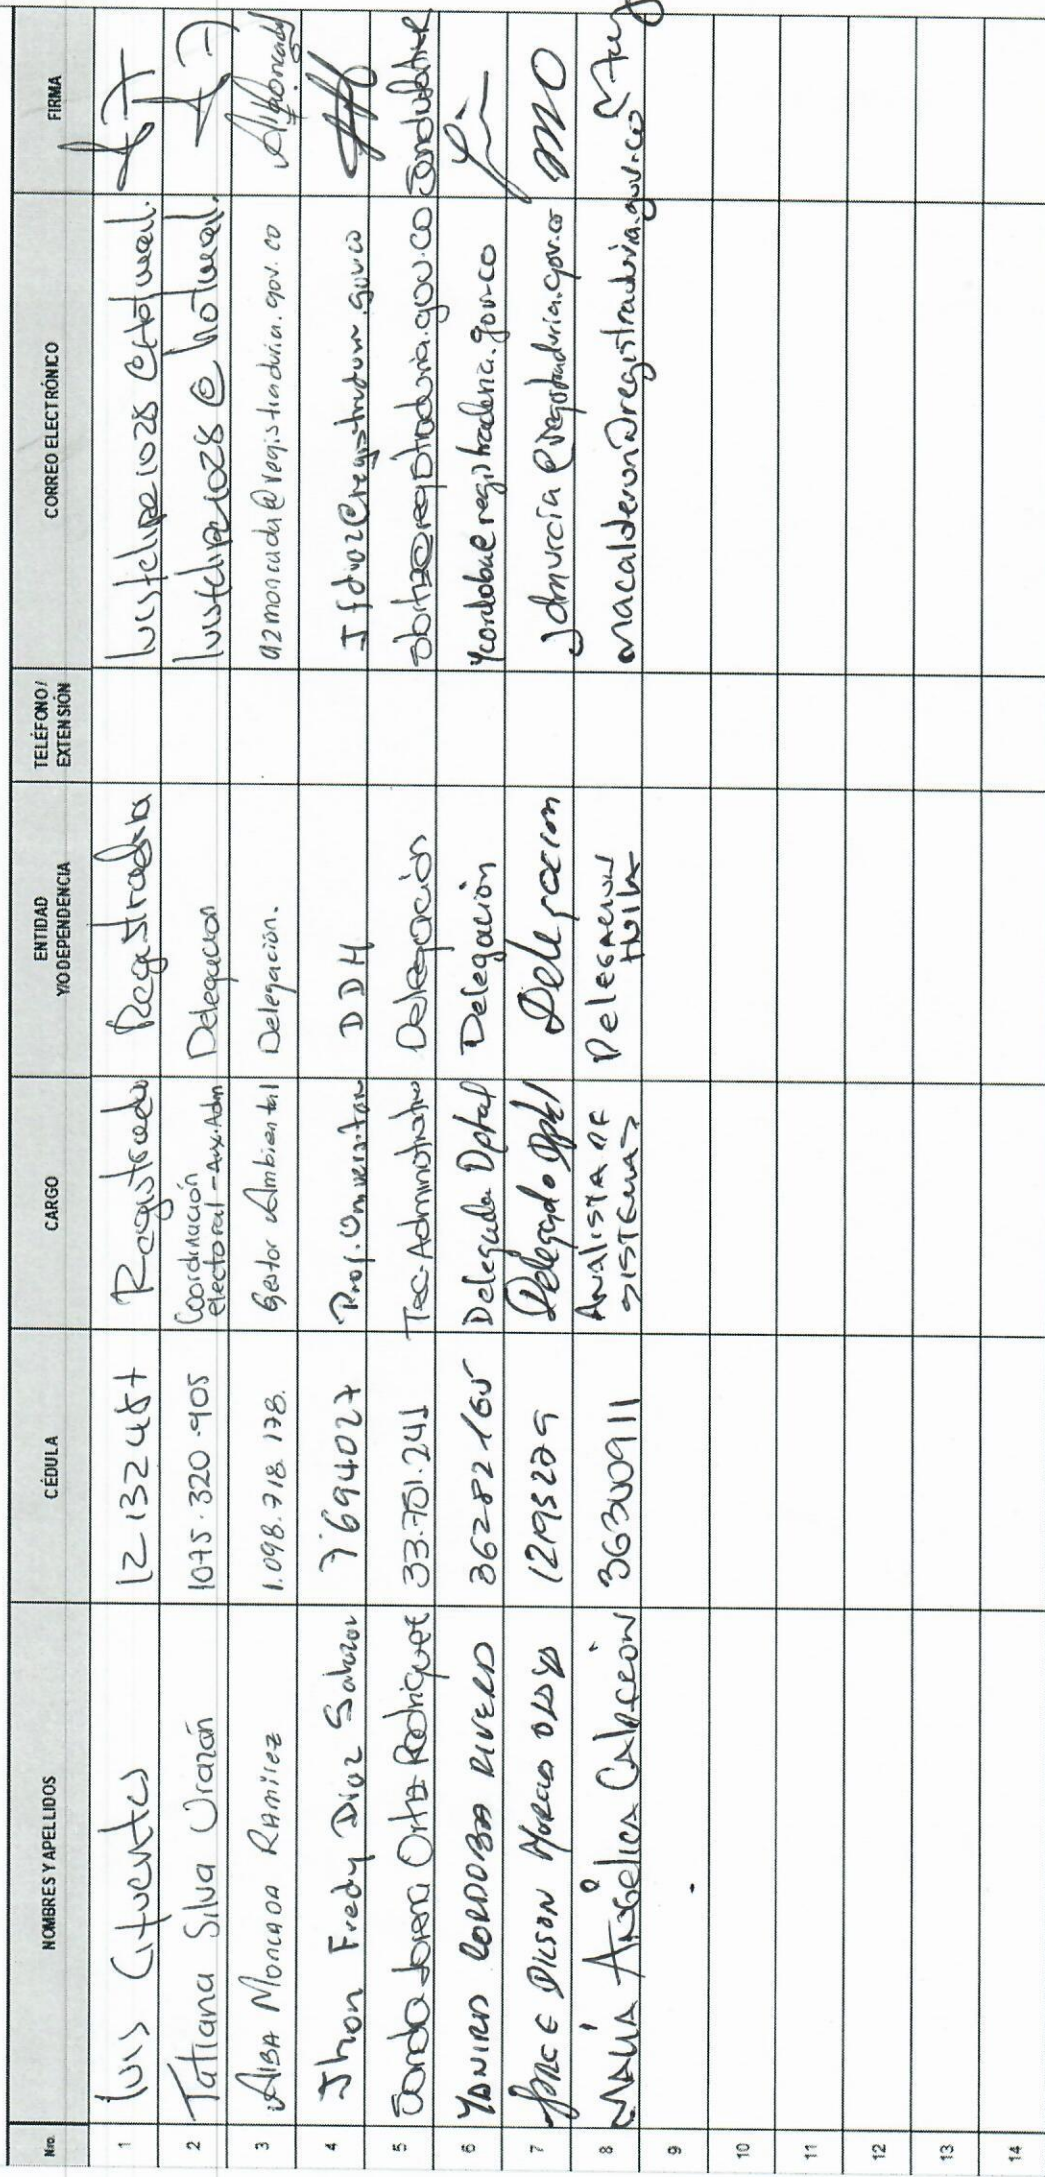 Nro. NOMBRES Y APELLIDOS CÉDULA CARGO ENTIDAD Y/O DEPENDENCIA TELÉFONO/ EXTENSIÓN CORREO ELECTRÓNICO FIRMA
1 Luis Cifuentes 12132487 Registrador Registraduria luisfelipe1028@Hotmail.
2 Tatiana Silva 1075.320.905 Coordinación electoral - Aux. Adm Delegacion luisfelipe1028@hotmail.
3 Alba Moncada Ramirez 1.098.718.178. Gestor Ambiental Delegación. azmoncada@registraduria.gov.co
4 Jhon Fredy Diaz Salazar 7694027 Prof. Universitario DDH Jfdiaz@registraduria.gov.co
5 Sandra Lorena Ortiz Rodriguez 33.751.241 Tec-Administrativo Delegación slortiz@registraduria.gov.co
6 Yanira Cordoba Rivera 36282165 Delegada Dptal Delegación Ycordoba@registraduria.gov.co
7 Jorge Dilson Murcia Olaya 12195279 Delegado Dptal Delegacion jdmurcia@registraduria.gov.co
8 Maria Angelica Calderon 36300911 Analista de sistemas Delegacion Huila macalderon@registraduria.gov.co
9
10
11
12
13
14